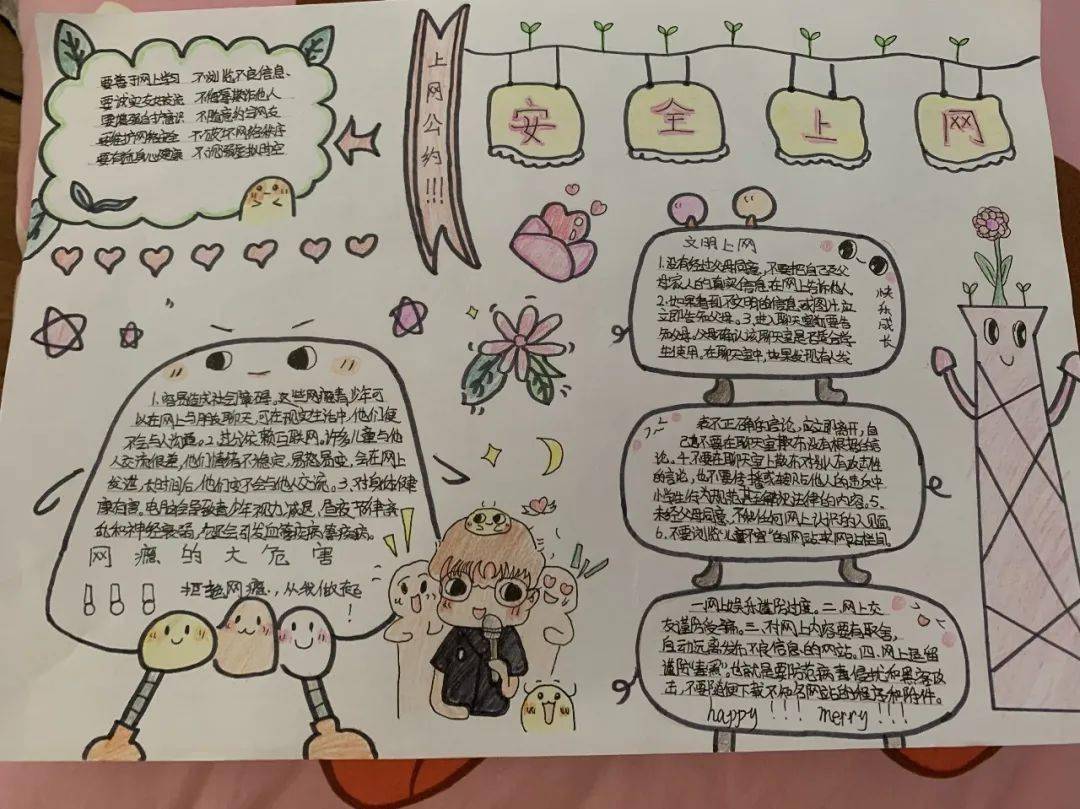 安全上网
上网公约!!!
要善于网上学习 不浏览不良信息、
要诚实友好交流 不侮辱欺诈他人
要增强自护意识 不随意约会网友
要维护网络安全 不破坏网络秩序
要有益身心健康 不沉溺虚拟时空
1.容易造成社会障碍。这些网瘾青少年可
以在网上与朋友聊天,可在现实生活中,他们便
不会与人沟通。2.过分依赖互联网。许多儿童与他
人交流很差,他们情绪不稳定,易怒易变,会在网上
发泄,长时间后,他们变不会与他人交流。3.对身体健
康有害,电脑会导致青少年视力减退,昼夜节律紊
乱和神经衰弱,还会引发血管疾病等疾病。
网瘾的大危害
!!!
拒绝网瘾,从我做起
!
文明上网
快乐成长
1.没有经过父母同意,不要把自己及父
母家人的真实信息,在网上告诉他人
2.如果看到不文明的信息或图片,应
立即告知父母。3.进入聊天室前要告
知父母,父母确认该聊天室是否适合学
生使用。在聊天室中,如果发现有人发
表不正确的言论,应立即离开,自
己也不要在聊天室散布没有根据的言
论。4.不要在聊天室上散布对别人有攻击性
的言论,也不要传播或转贴他人的违反中
小学生行为规范甚至触犯法律的内容。5.
未经父母同意,不和任何网上认识的人见面
6.不要浏览“儿童不宜”的网站或网站栏目。
一网上娱乐谨防过度。二、网上交
友谨防受骗。三、对网上内容要有取舍,
自动远离发布不良信息的网站。四、网上逗留
谨防“毒黑”。也就是要防范病毒侵扰和黑客攻
击,不要随便下载不知名网站的程序和附件。
happy!!! merry!!!